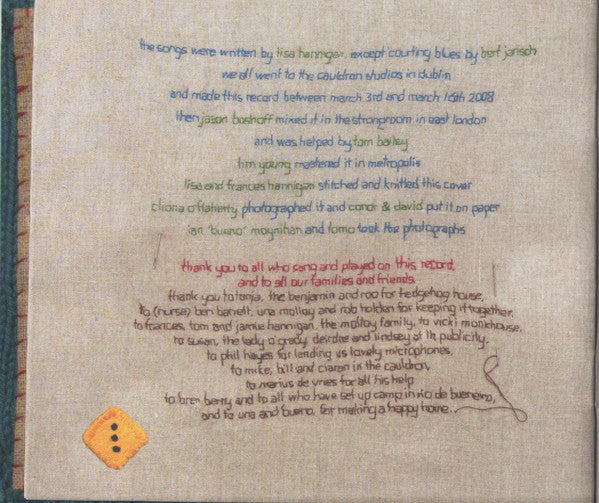 the songs were written by lisa hannigan, except courting blues by bert jansch
we all went to the cauldron studios in dublin
and made this record between march 3rd and march 16th 2008
then jason boshoff mixed it in the strongroom in east london
and was helped by tom bailey
tim young mastered it in metropolis
lisa and frances hannigan stitched and knitted this cover
cliona o'flaherty photographed it and conor & david put it on paper
ian 'bueno' moynihan and tomo took the photographs
thank you to all who sang and played on this record,
and to all our families and friends.
thank you to tanja, the benjamin and roo for hedgehog house,
to (nurse) ben banelt, una molloy and rob holden for keeping it together,
to frances, tom and jamie hannigan, the molloy family, to vicki monkhouse,
to susan, the lady o'grady, deirdre and lindsey at lh publicity,
to phil hayes for lending us lovely microphones,
to mike, bill and ciaran in the cauldron,
to marius de vries for all his help
to bren berry and to all who have set up camp in rio de bueneiro,
and to una and bueno, for making a happy home...